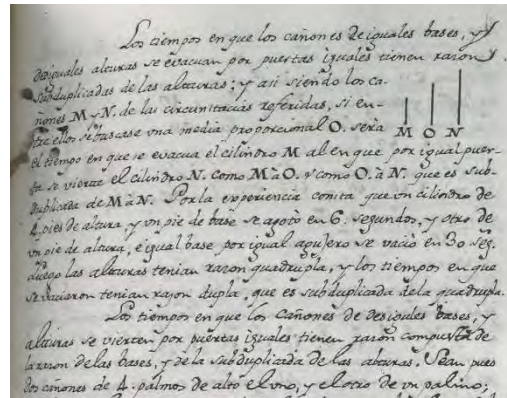 Los tiempos en que los cañones de iguales bases, y
desiguales alturas se evacuan por puertas iguales tienen razon
subduplicadas de las alturas; y asi siendo los ca-
ñones M y N. de las circunstacias referidas, si en-
tre ellos se tascase vna media proporcional O. sera
M O N
el tiempo en que se evacua el cilindro M al en que por igual puer-
ta se vierte el cilindro N. como M à O. v como O. à N. que es sub-
duplicada de M à N. Por la experiencia consta que vn cilindro de
4. pies de altura, y vn pie de base se agotò en 6. segundos, y otro de
vn pie de altura, e igual base por igual agujero se vaciò en 30 seg.
Luego las alturas tenian razon quadrupla, y los tiempos en que
se vaciaron tenian razon dupla, que es subduplicada de la quadrupla.
Los tiempos en que los Cañones de desiguales bases, y
alturas se vierten por puertas iguales tienen razon compuesta de
la razon de las bases, y de la subduplicaida de las alturas. Sean pues
dos cañones de 4. palmos de alto el vno, y el otro de vn palmo;